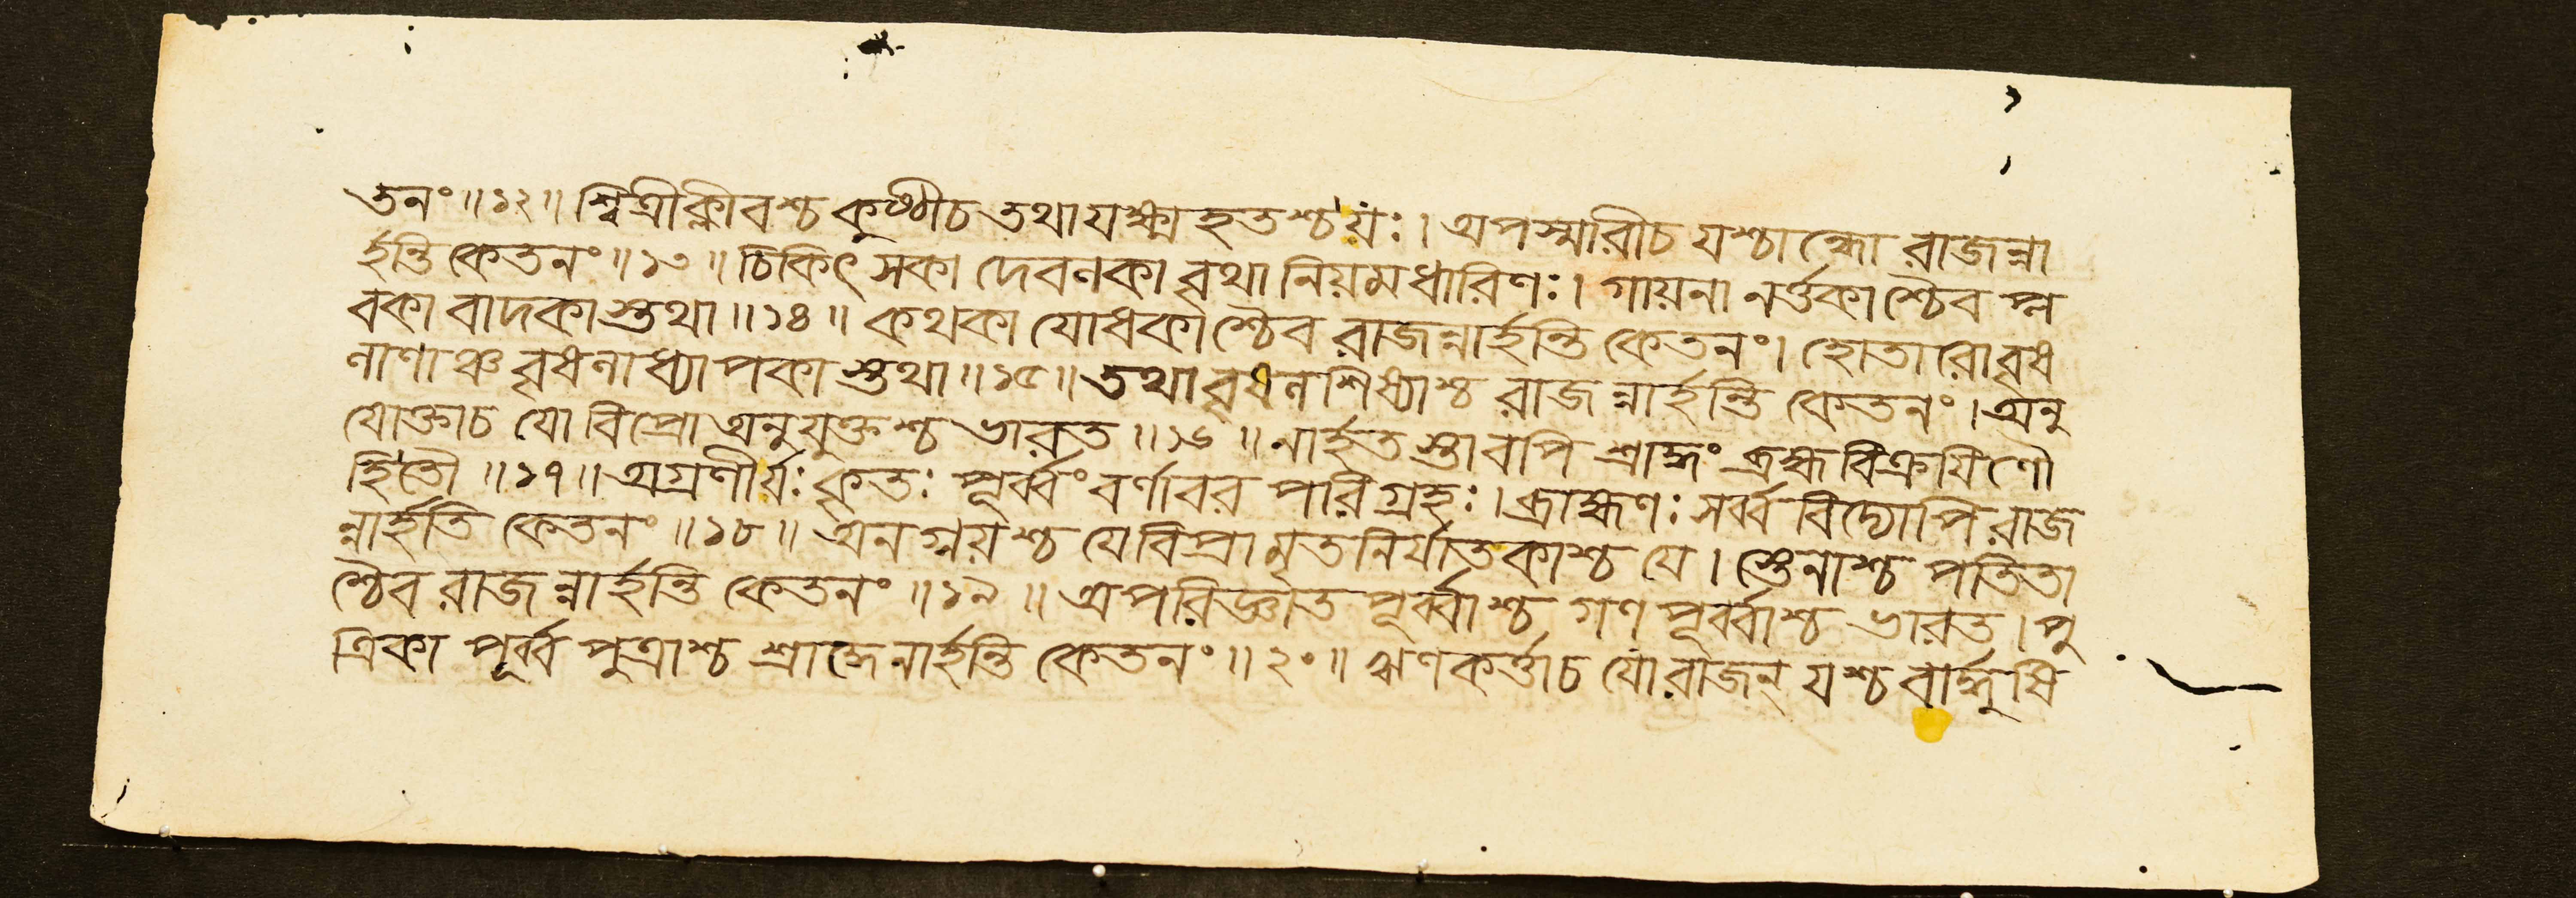 তনং॥১২॥ শ্বিত্রীক্লীবশ্চ কুষ্ঠীচ তথা যক্ষ্মহতশ্চ যঃ। অপস্মারীচ যশ্চান্ধো রাজন্না
র্হন্তি কেতনং॥১৩॥ চিকিৎসকা দেবণকা বৃথা নিয়মধারিণঃ। গায়না নর্ত্তকাশ্চৈব প্ল
বকা বাদকাস্তথা॥১৪॥ কথকা যোধকাশ্চৈব রাজন্নার্হন্তি কেতনং। হোতারো বৃষ
নাণাঞ্চ বৃষনাধ্যাপকাস্তথা॥১৫॥ তথা বৃষন শিষ্যাশ্চ রাজন্নার্হন্তি কেতনং। অনু
যোক্তাচ যো বিপ্রো অনুযুক্তশ্চ ভারত॥১৬॥ নার্হতস্তাবপি শ্রাদ্ধং ব্রহ্মবিক্রয়িণৌ
হিতৌ॥১৭॥ অগ্রণীর্যঃ কৃতঃ পূর্ব্বং বর্ণাবর পরিগ্রহঃ। ব্রাহ্মণঃ সর্ব্ববিদ্যোপি রাজ
ন্নার্হতি কেতনং॥১৮॥ অনগ্নয়শ্চ যেবিপ্রা মৃতনির্যাতকাশ্চ যে। স্তেনাশ্চ পতিতা
শ্চৈব রাজন্নার্হন্তি কেতনং॥১৯॥ অপরিজ্ঞাত পূর্ব্বাশ্চ গণপূর্ব্বাশ্চ ভারত। পু
ত্রিকা পূর্ব্বপুত্রাশ্চ শ্রাদ্ধেনার্হন্তি কেতনং॥২০॥ ঋণকর্ত্তাচ যো রাজন্ যশ্চ বার্দ্ধুষি